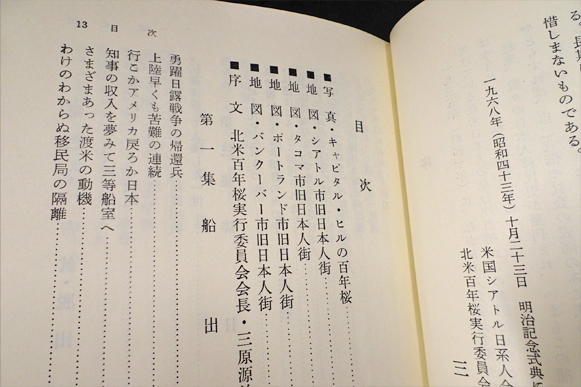 る。長期
惜しまないものである。
一九六八年(昭和四十三年)十月二十三日 明治記念式典に
米国シアトル日系人会
北米百年桜実行委員会
三
目次
■写真・キャピタル・ヒルの百年桜
■地図・シアトル市旧日本人街
■地図・タコマ市旧日本人街
■地図・ポートランド市旧日本人街
■地図・バンクーバー市旧日本人街
■序文 北米百年桜実行委員会会長・三原源
第一集 船出
勇躍日露戦争の帰還兵
上陸早くも苦難の連続
行こかアメリカ戻ろか日本
知事の収入を夢みて三等船室へ
さまざまあった渡米の動機
わけのわからぬ移民局の隔離
13 目次